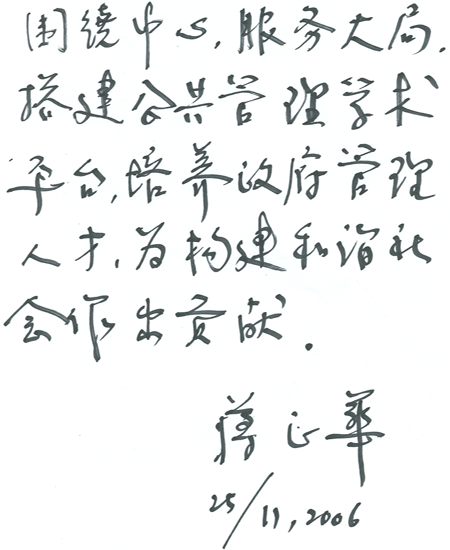 围绕中心,服务大局,
搭建公共管理学术
平台,培养政府管理
人才,为构建和谐社
会作出贡献.
蒋正华
25/11,2006